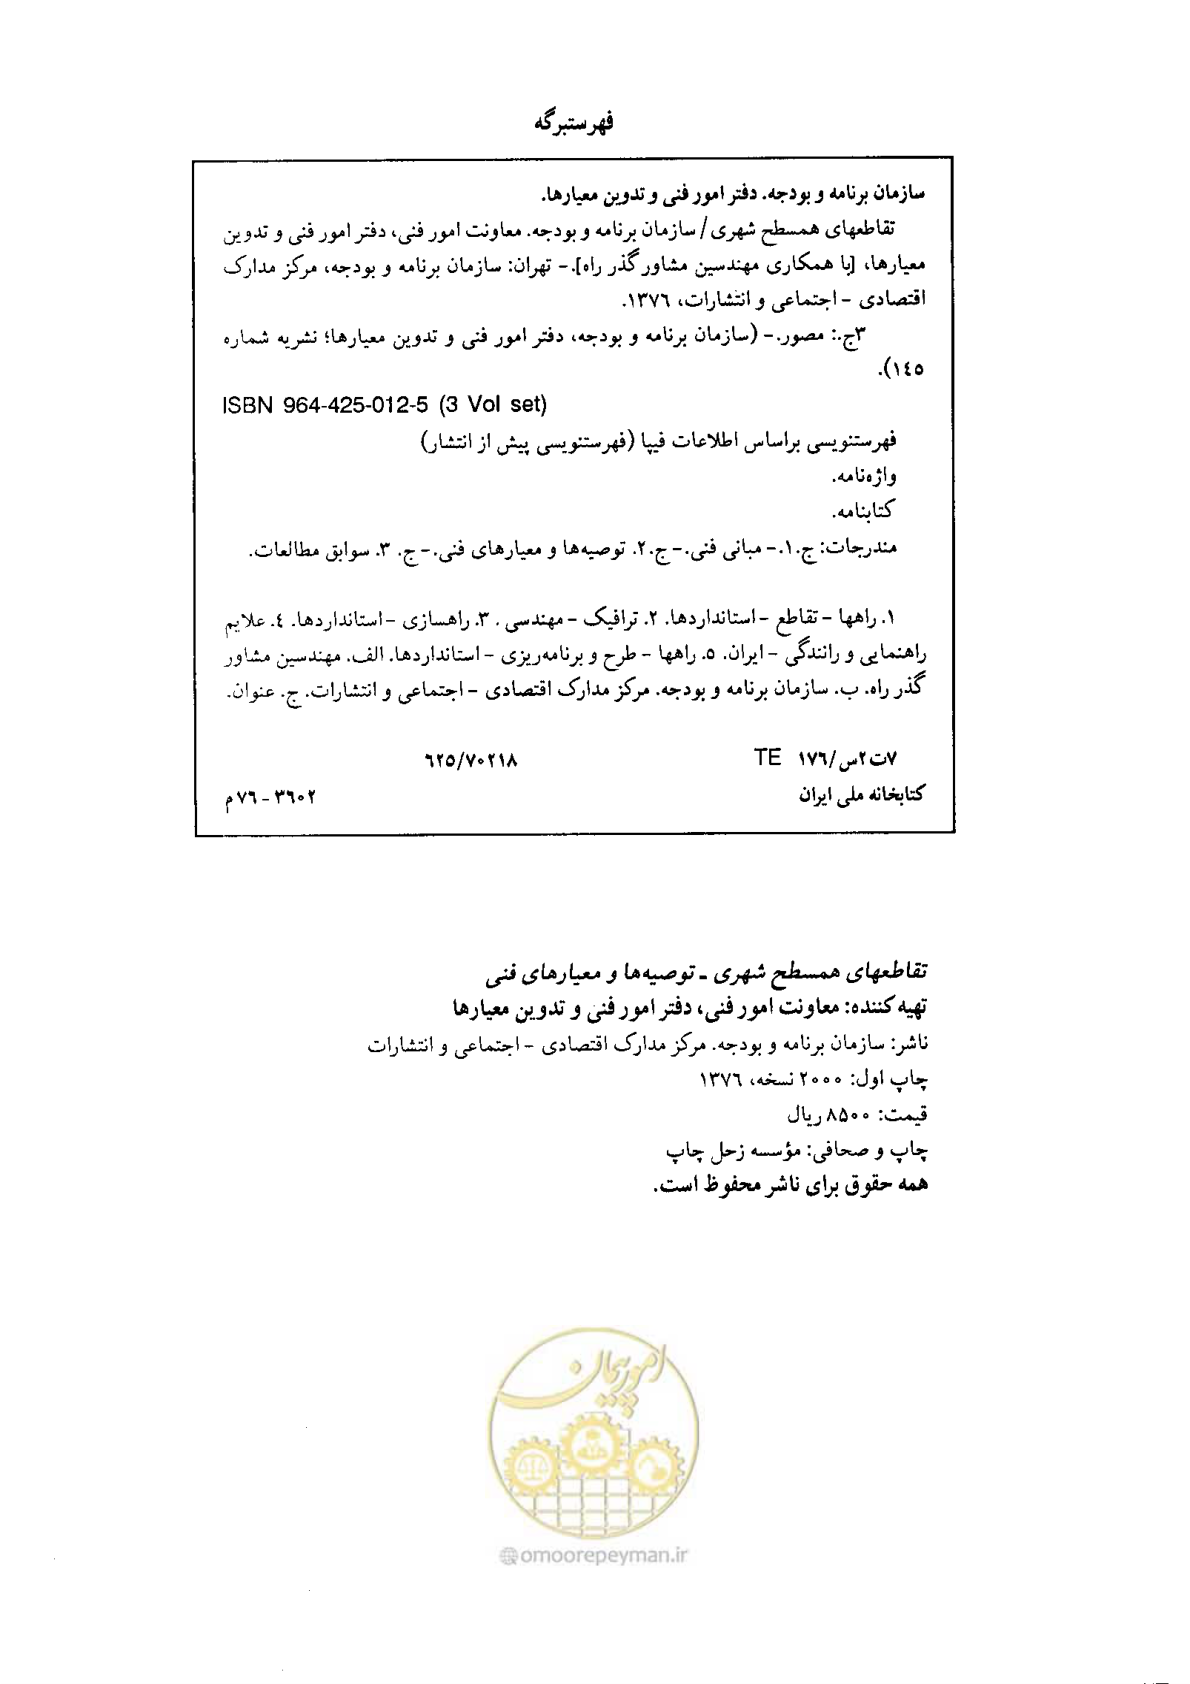 فهرستبرگه
سازمان برنامه و بودجه. دفتر امور فنی و تدوین معیارها.
تقاطعهای همسطح شهری/ سازمان برنامه و بودجه. معاونت امور فنی، دفتر امور فنی و تدوین
معیارها، [با همکاری مهندسین مشاور گذر راه].- تهران: سازمان برنامه و بودجه، مرکز مدارک
اقتصادی - اجتماعی و انتشارات، ۱۳۷۶.
۳ج.: مصور.- (سازمان برنامه و بودجه، دفتر امور فنی و تدوین معیارها؛ نشریه شماره
۱۴۵).
ISBN 964-425-012-5 (3 Vol set)
فهرستنویسی براساس اطلاعات فیپا (فهرستنویسی پیش از انتشار)
واژه‌نامه.
کتابنامه.
مندرجات: ج.۱.- مبانی فنی.- ج.۲. توصیه‌ها و معیارهای فنی.- ج. ۳. سوابق مطالعات.
۱. راهها - تقاطع - استانداردها. ۲. ترافیک - مهندسی . ۳. راهسازی - استانداردها. ۴. علایم
راهنمایی و رانندگی - ایران. ۵. راهها - طرح و برنامه‌ریزی - استانداردها. الف. مهندسین مشاور
گذر راه. ب. سازمان برنامه و بودجه. مرکز مدارک اقتصادی - اجتماعی و انتشارات. ج. عنوان.
۷ت۲س/۱۷۶ TE ۶۲۵/۷۰۲۱۸
کتابخانه ملی ایران ۳۶۰۲ - ۷۶م
تقاطعهای همسطح شهری ـ توصیه‌ها و معیارهای فنی
تهیه کننده: معاونت امور فنی، دفتر امور فنی و تدوین معیارها
ناشر: سازمان برنامه و بودجه. مرکز مدارک اقتصادی - اجتماعی و انتشارات
چاپ اول: ۲۰۰۰ نسخه، ۱۳۷۶
قیمت: ۸۵۰۰ ریال
چاپ و صحافی: مؤسسه زحل چاپ
همه حقوق برای ناشر محفوظ است.
امور پیمان
@omoorepeyman.ir